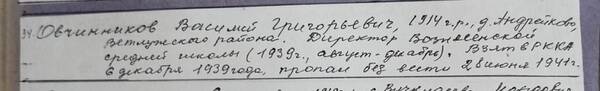 34. Овчинников Василий Григорьевич, 1914 г.р., д. Андрейково,
Ветлужского района. Директор Вознесенской
средней школы (1939г., август-декабрь). Взят в РККА
в декабре 1939 года, пропал без вести 28 июня 1941 г.